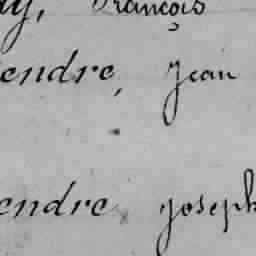 ay, François
endre, Jean
endre, Joseph